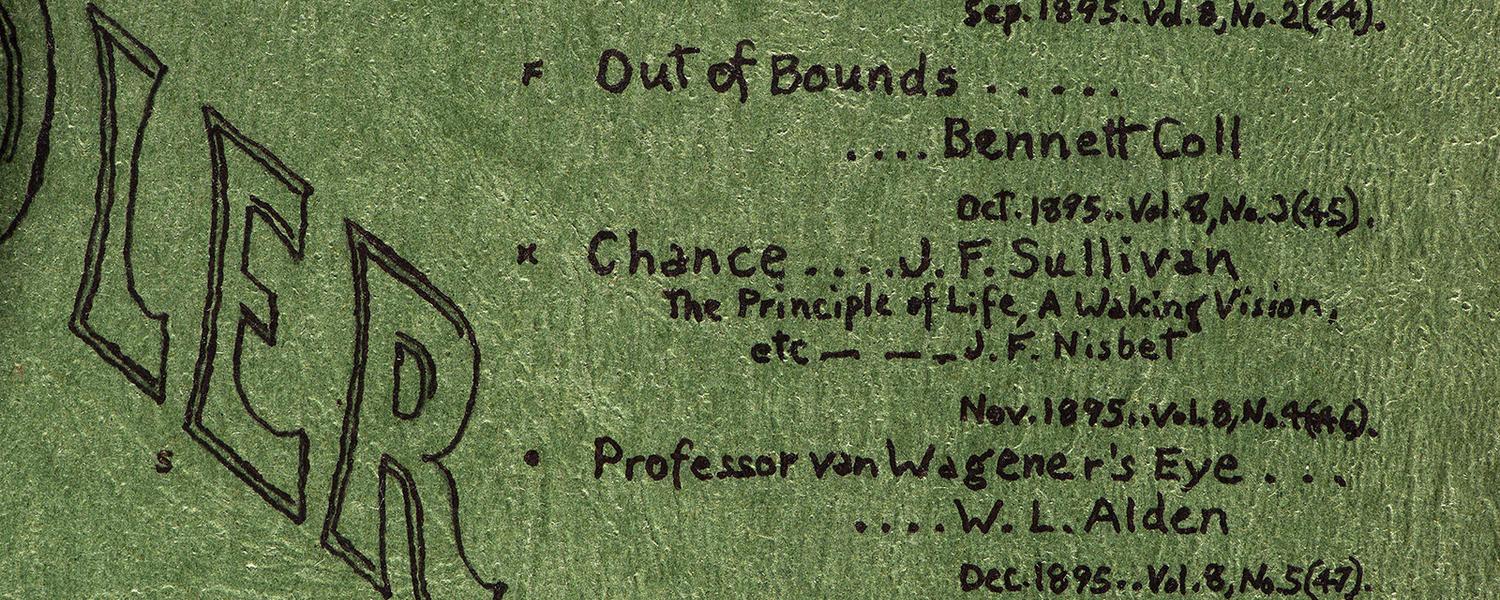 LER
Sep. 1895..Vol. 8, No. 2(44).
F Out of Bounds . . . . .
. . . . Bennett Coll
Oct. 1895..Vol. 8, No. 3(45).
x Chance . . . . J. F. Sullivan
The Principle of Life, A Waking Vision,
etc — — – J. F. Nisbet
Nov. 1895..Vol. 8, No. 4(46).
s • Professor van Wagener's Eye . . .
. . . . W. L. Alden
Dec. 1895..Vol. 8, No. 5(47).